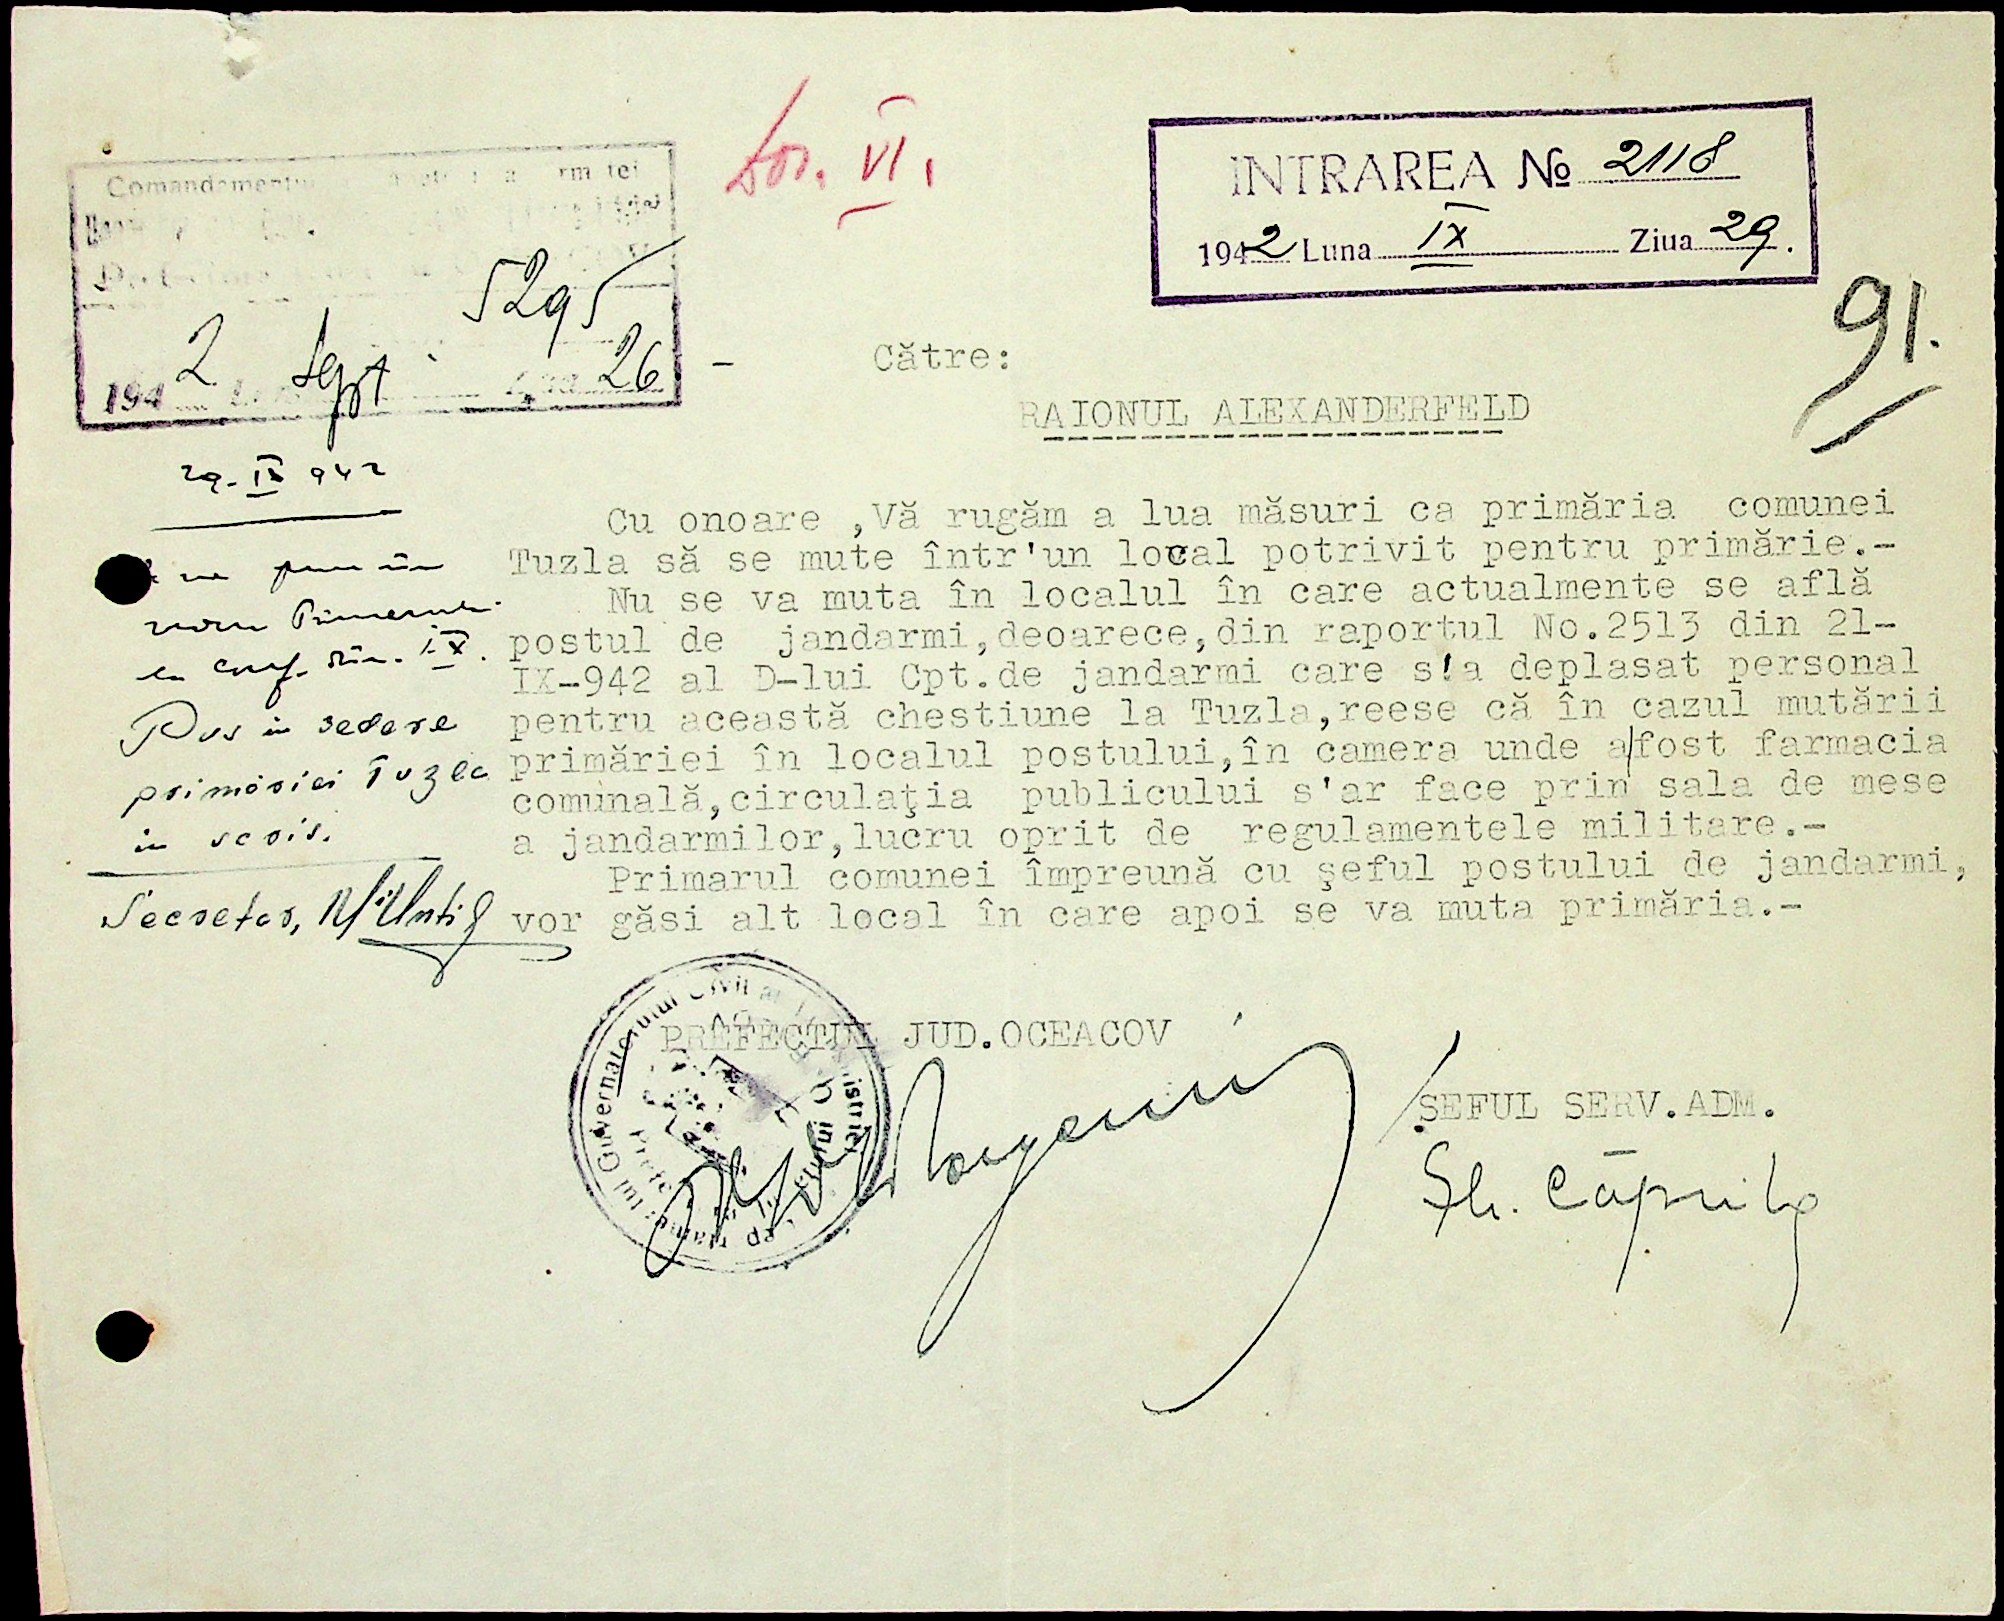 Dos. VI.
INTRAREA № 2118
1942 Luna IX Ziua 29.
Comandamentul
5295
1942 Sept 26
91.
- Către:
RAIONUL ALEXANDERFELD
29. IX 942
Cu onoare ,Vă rugăm a lua măsuri ca primăria comunei
Tuzla să se mute într'un local potrivit pentru primărie.-
Nu se va muta în localul în care actualmente se află
postul de jandarmi,deoarece,din raportul No.2513 din 21-
IX-942 al D-lui Cpt.de jandarmi care s'a deplasat personal
pentru această chestiune la Tuzla,reese că în cazul mutării
primăriei în localul postului,în camera unde a/fost farmacia
comunală,circulaţia publicului s'ar face prin sala de mese
a jandarmilor,lucru oprit de regulamentele militare.-
Primarul comunei împreună cu şeful postului de jandarmi,
vor găsi alt local în care apoi se va muta primăria.-
la conf. din. IX.
Pus in vedere
primăriei Tuzla
in scris.
Secretar,
PREFECTUL JUD.OCEACOV
Guvernatorului Civil al
ŞEFUL SERV.ADM.
Gh.